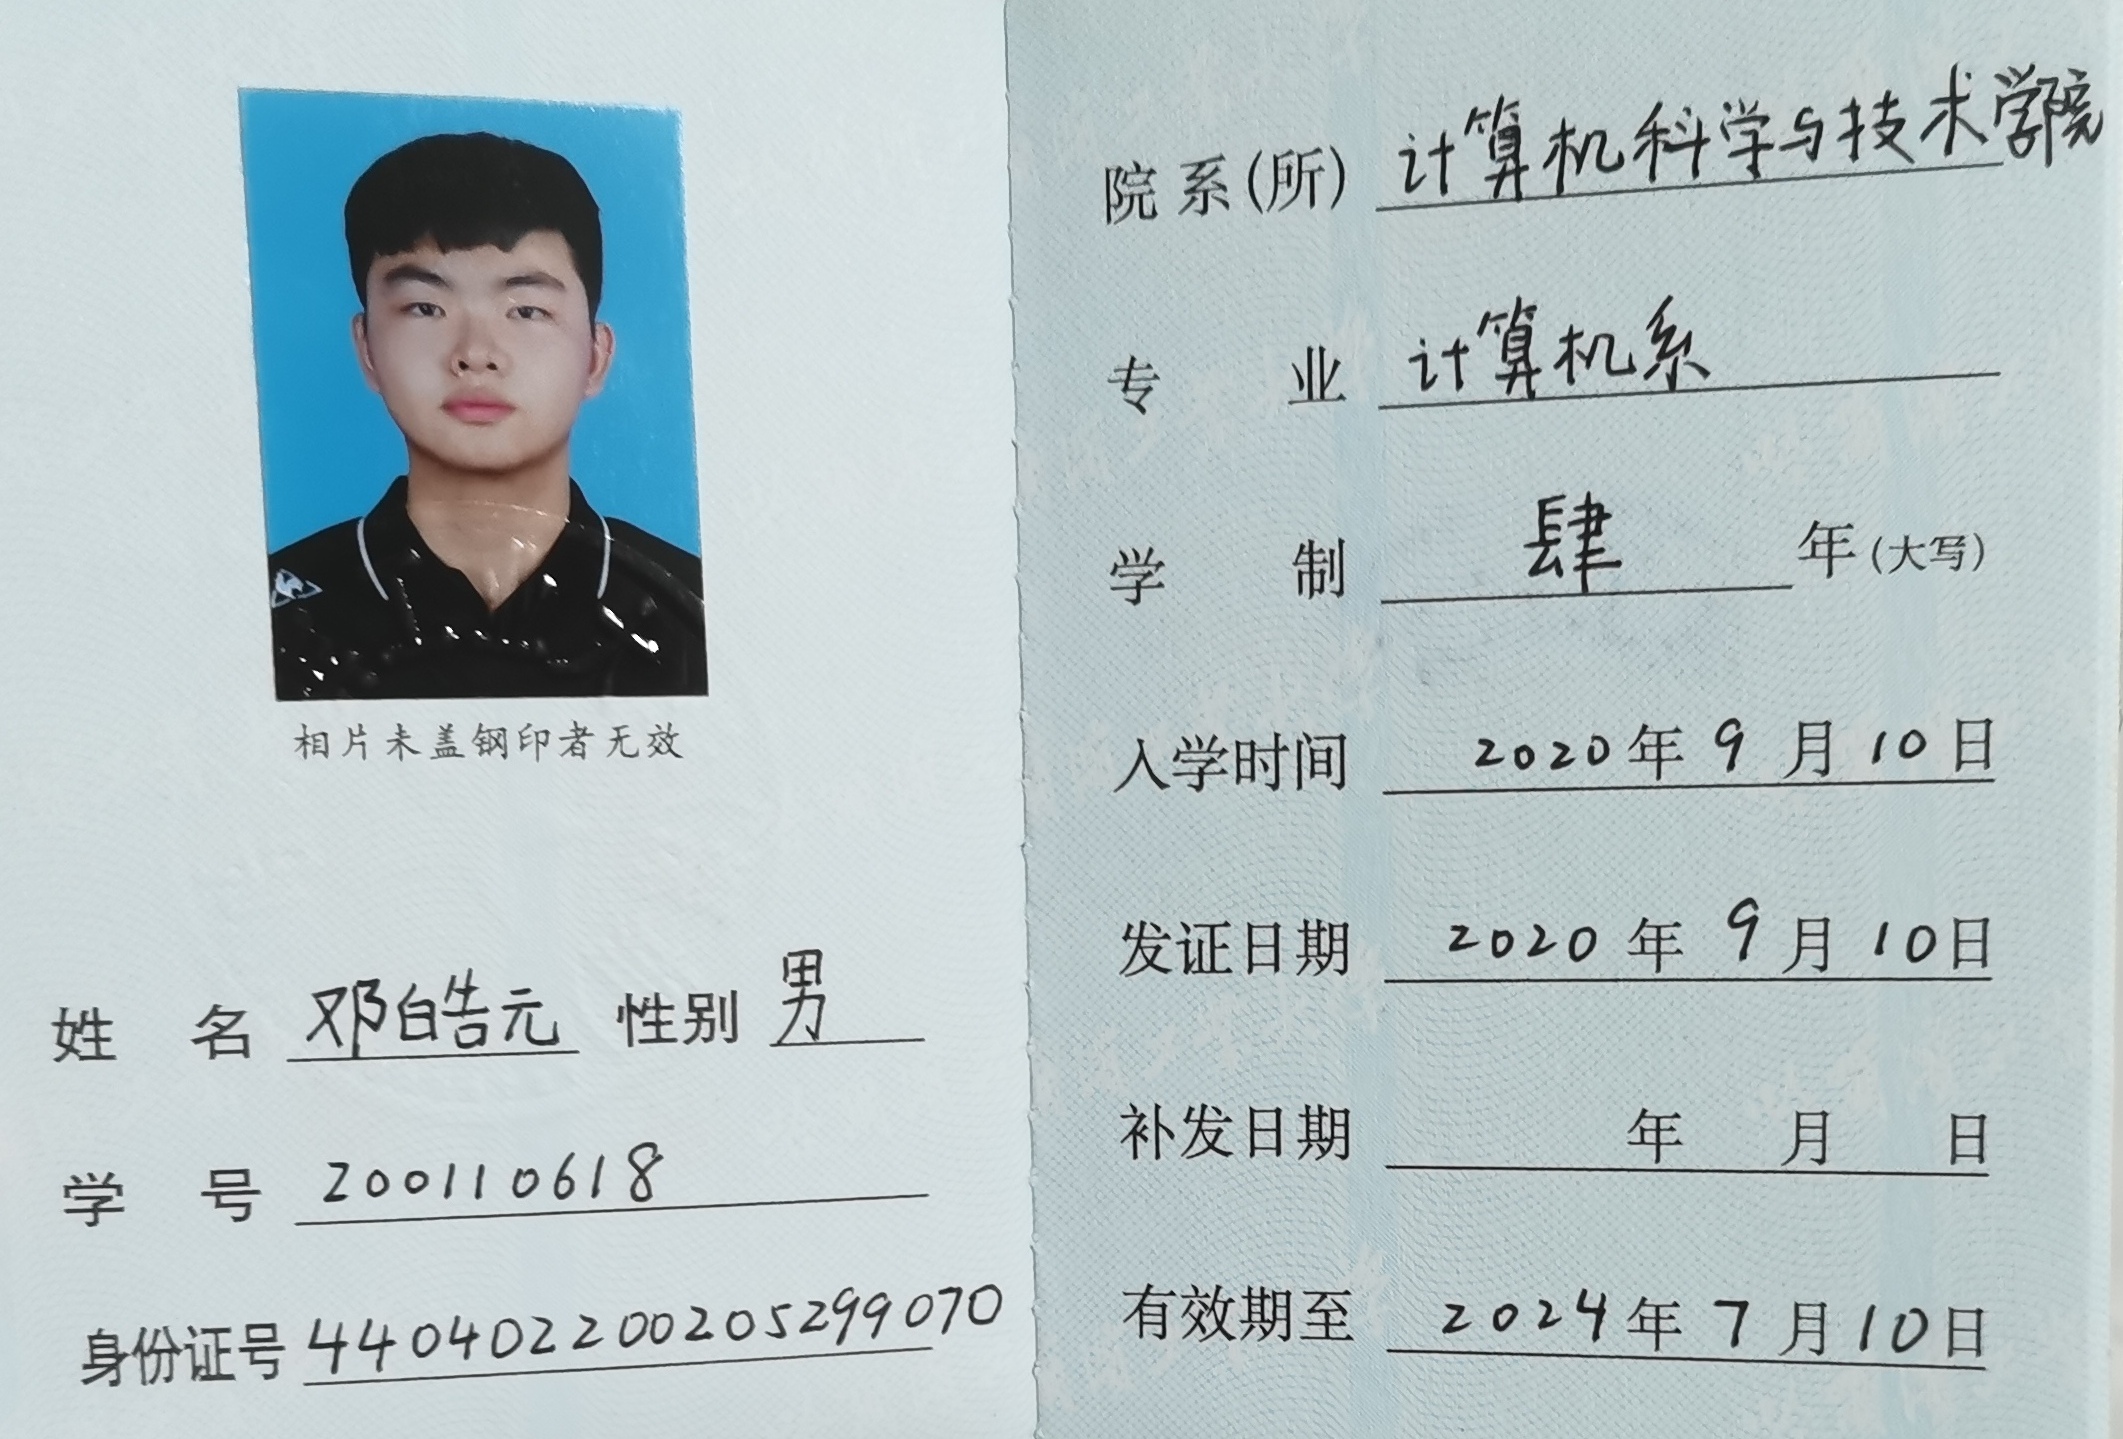 相片未盖钢印者无效
姓名 邓皓元 性别 男
学号 200110618
身份证号 440402200205299070
院系(所) 计算机科学与技术学院
专业 计算机系
学制 肆 年(大写)
入学时间 2020年9月10日
发证日期 2020年9月10日
补发日期 年 月 日
有效期至 2024年7月10日